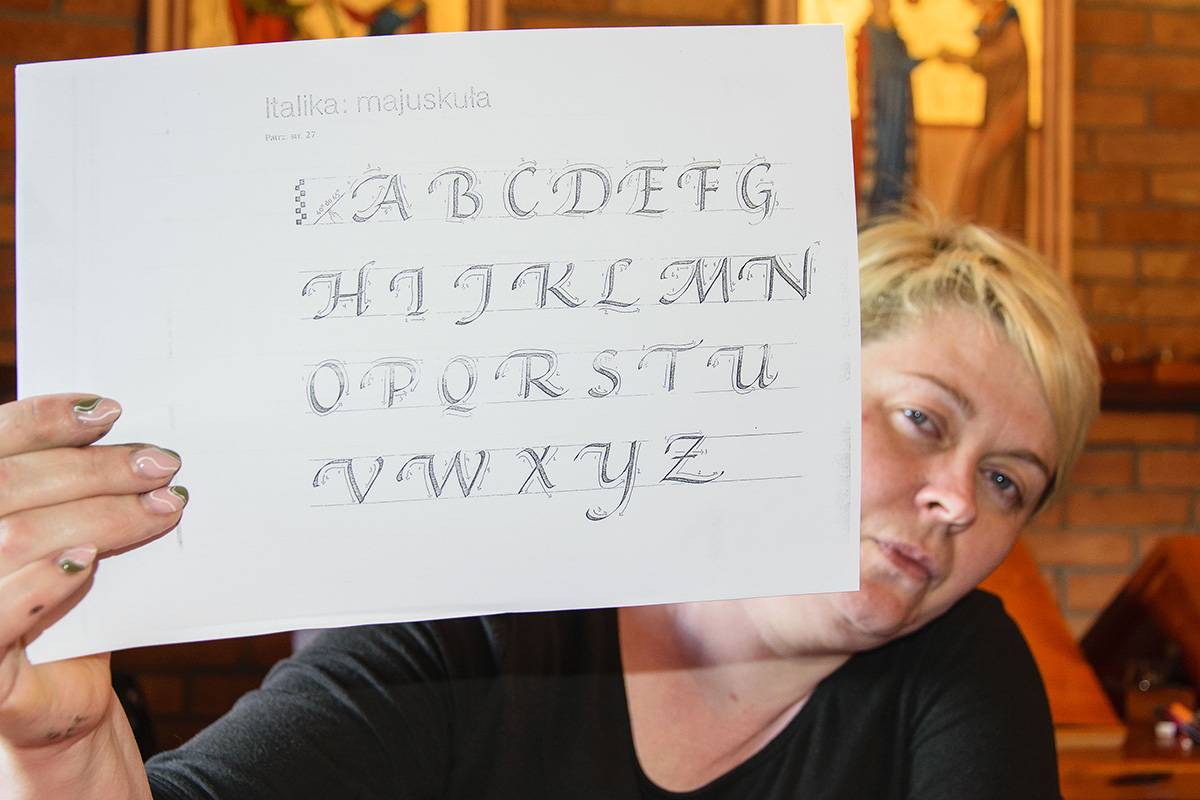 Italika: majuskuła
Patrz: str. 27.
A B C D E F G
H I J K L M N
O P Q R S T U
V W X Y Z